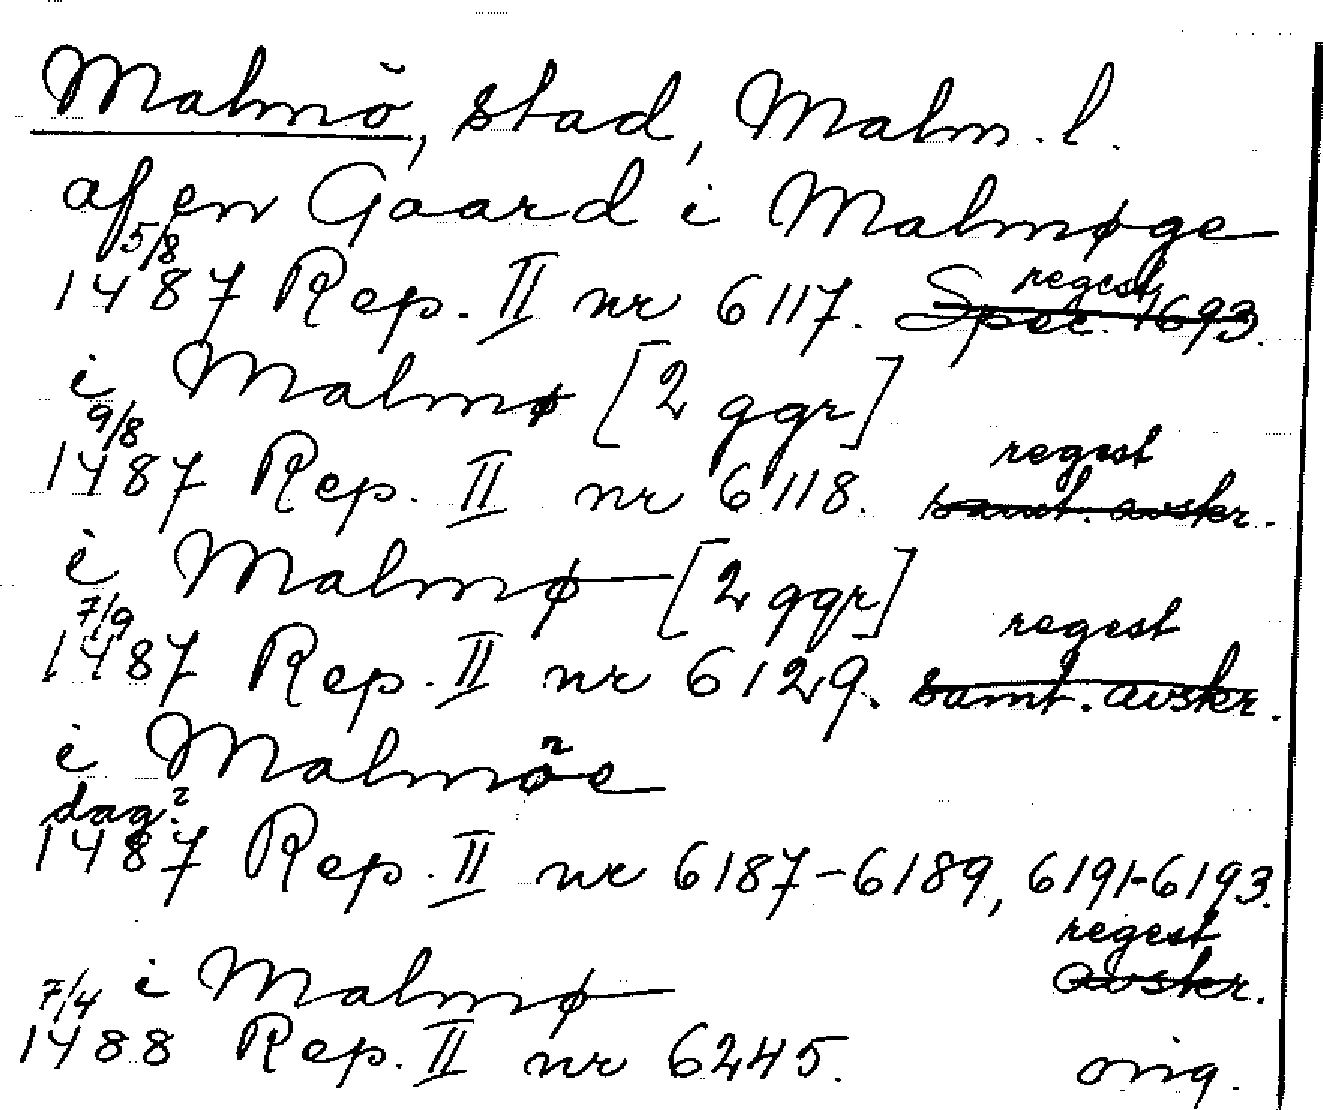 Malmö, stad, Malm. l.
af en Gaard i Malmøge
5/8 regest
1487 Rep. II nr 6117. Spec. 1693.
i Malmø [2 ggr]
9/8 regest
1487 Rep. II nr 6118. samt. avskr.
i Malmø [2 ggr]
7/9 regest
1487 Rep. II nr 6129. samt. avskr.
i Malmøe
dag?
1487 Rep. II nr 6187-6189, 6191-6193.
regest
7/4 i Malmø avskr.
1488 Rep. II nr 6245. orig.